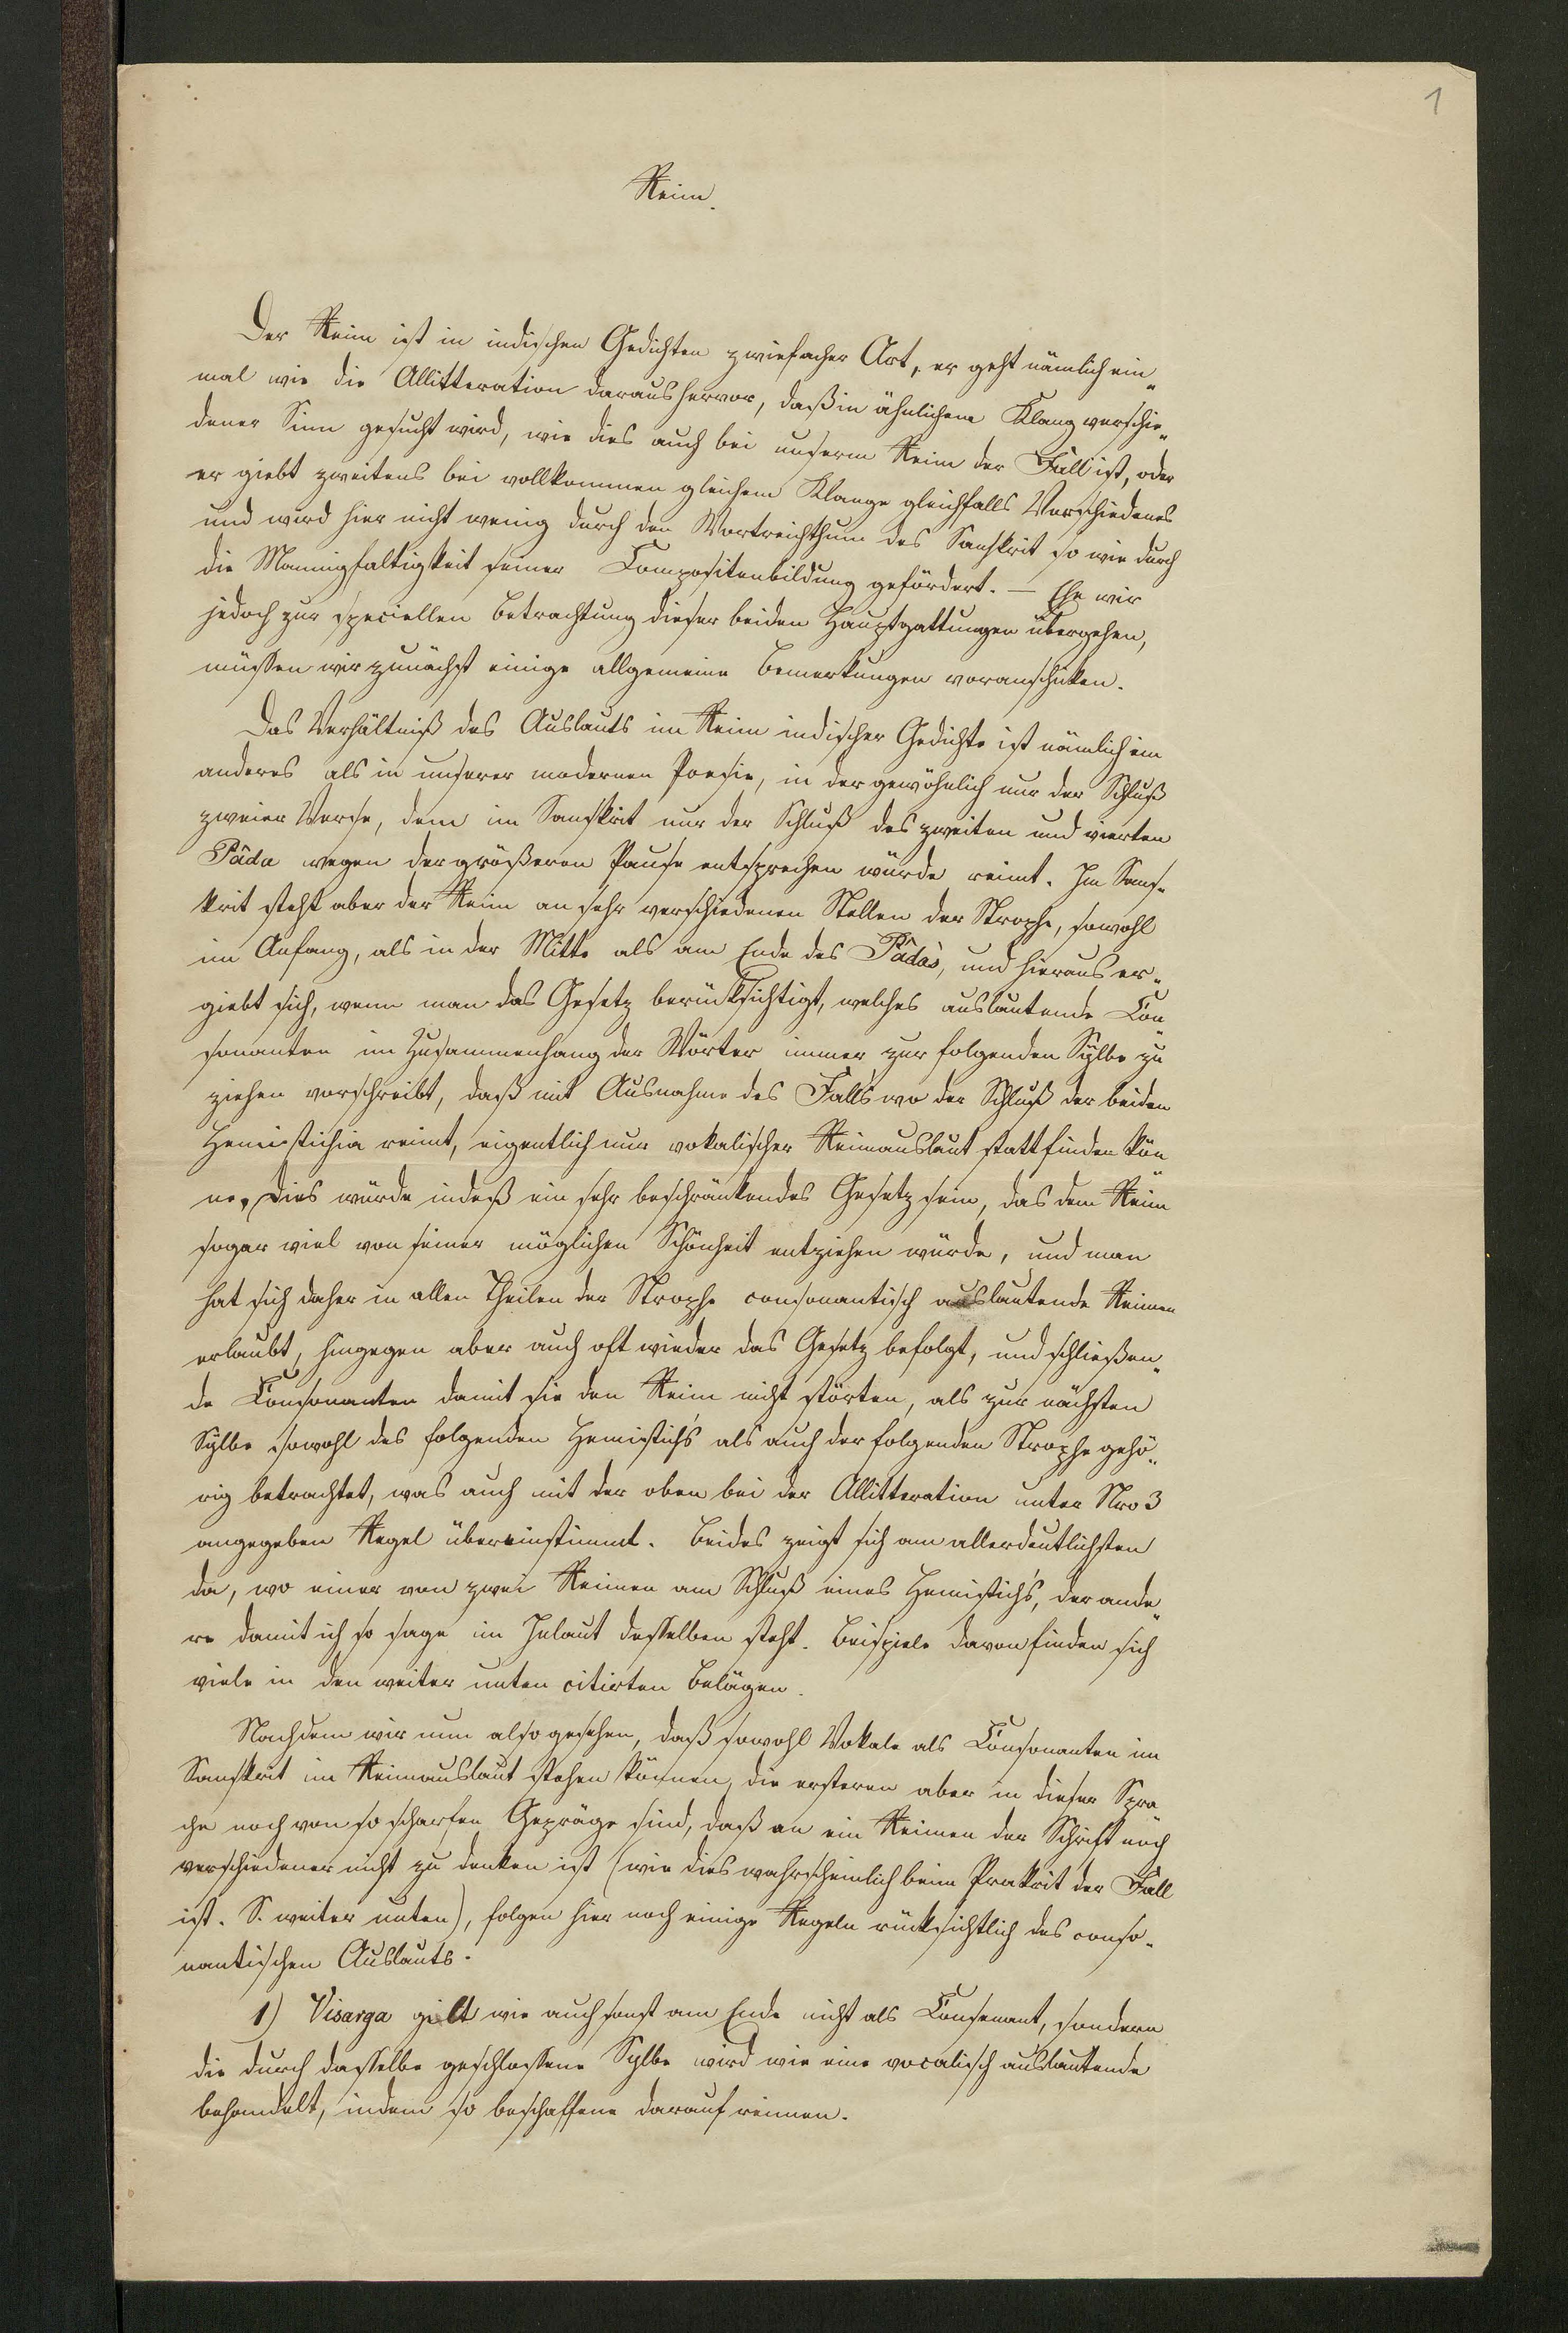 1
Reim.
Der Reim ist in indischen Gedichten zwiefacher Art, er geht nämlich ein„
mal wie die Allitteration daraus hervor, daß in ähnlichem Klang verschie„
dener Sinn gesucht wird, wie dies auch bei unserm Reim der Fall ist, oder
er giebt zweitens bei vollkommen gleichem Klange gleichfalls Verschiedenes
und wird hier nicht wenig durch den Wortreichthum des Sanskrit so wie durch
die Mannigfaltigkeit seiner Compositenbildung gefördert. — Ehe wir
jedoch zur speciellen Betrachtung dieser beiden Hauptgattungen übergehen,
müssen wir zunächst einige allgemeine Bemerkungen voranschicken.
Das Verhältniß des Auslauts im Reim indischer Gedichte ist nämlich ein
anderes als in unserer modernen Poesie, in der gewöhnlich nur der Schluß
zweier Verse, dem im Sanskrit nur der Schluß des zweiten und vierten
Pâda wegen der größeren Pause entsprechen würde reimt. Im Sans„
krit steht aber der Reim an sehr verschiedenen Stellen der Strophe, sowohl
im Anfang, als in der Mitte als am Ende des Pâda's, und hieraus er„
giebt sich, wenn man das Gesetz berücksichtigt, welches auslautende Con„
sonanten im Zusammenhang der Wörter immer zur folgenden Sylbe zu
ziehen vorschreibt, daß mit Ausnahme des Falls wo der Schluß der beiden
Hemistichia reimt, eigentlich nur vokalischer Reimauslaut stattfinden kön„
ne. Dies würde indeß ein sehr beschränkendes Gesetz sein, das dem Reim
sogar viel von seiner möglichen Schönheit entziehen würde, und man
hat sich daher in allen Theilen der Strophe consonantisch auslautende Reimen
erlaubt, hingegen aber auch oft wieder das Gesetz befolgt, und schließen„
de Consonanten damit sie den Reim nicht störten, als zur nächsten
Sylbe sowohl des folgenden Hemistich's als auch der folgenden Strophe gehö„
rig betrachtet, was auch mit der oben bei der Allitteration unter Nro 3
angegeben Regel übereinstimmt. Beides zeigt sich am allerdeutlichsten
da, wo einer von zwei Reimen am Schluß eines Hemistich's, der ande„
re damit ich so sage im Inlaut desselben steht. Beispiele davon finden sich
viele in den weiter unten citirten Belägen.
Nachdem wir nun also gesehen, daß sowohl Vokale als Consonanten im
Sanskrit im Reimauslaut stehen können, die ersteren aber in dieser Spra„
che noch von so scharfen Gepräge sind, daß an ein Reimen der Schrift nach
verschiedener nicht zu denken ist (wie dies wahrscheinlich beim Prakrit der Fall
ist. S. weiter unten), folgen hier noch einige Regeln rücksichtlich des conso„
nantischen Auslauts.
1) Visarga gilt wie auch sonst am Ende nicht als Consonant, sondern
die durch dasselbe geschlossene Sylbe wird wie eine vocalisch auslautende
behandelt, indem so beschaffene darauf reimen.